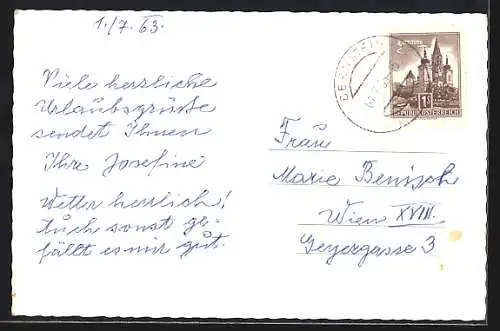 1./7. 63.
Viele herzliche
Urlaubsgrüsse
sendet Ihnen
Ihre Josefine
Wetter herrlich!
Auch sonst ge-
fällt es mir gut.
REPUBLIK ÖSTERREICH
Frau
Marie Benisch
Wien XVIII.
Geyergasse 3